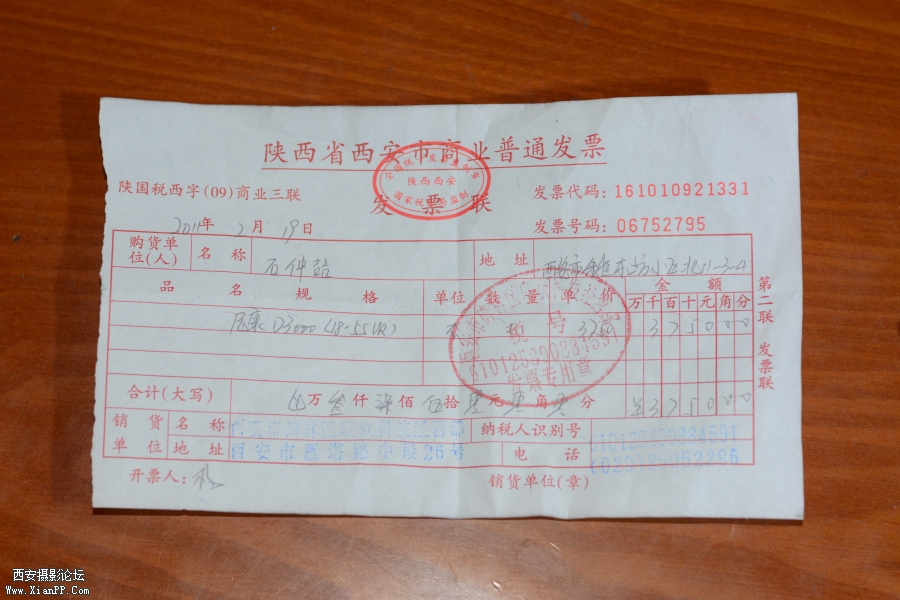 陕西省西安市商业普通发票
全国统一发票监制章
陕西西安
国家税务局监制
陕国税西字(09)商业三联
发票联
发票代码: 161010921331
发票号码: 06752795
2011年 2月 19日
购货单位(人) 名称 石仲喆 地址
品名规格 单位 数量 单价 金额
万 千 百 十 元 角 分
尼康 D3000 (18-55VR) 3750 3 7 5 0 0 0
税号
610125600334591
发票专用章
合计(大写) 万 叁仟 柒佰 伍拾 零元 零角 零分 ¥ 3 7 5 0 0 0
销货单位 名称 纳税人识别号
地址 西安市雁塔路中段26号 电话 (029)85952296
开票人:
销货单位(章)
第二联 发票联
西安摄影论坛
Www.XianPP.Com